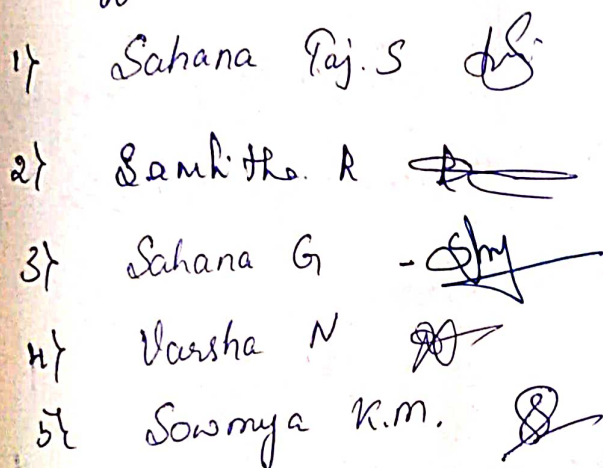 1) Sahana Taj. S
2) Samhitha. R
3) Sahana G -
4) Varsha N
5) Sowmya K.M.